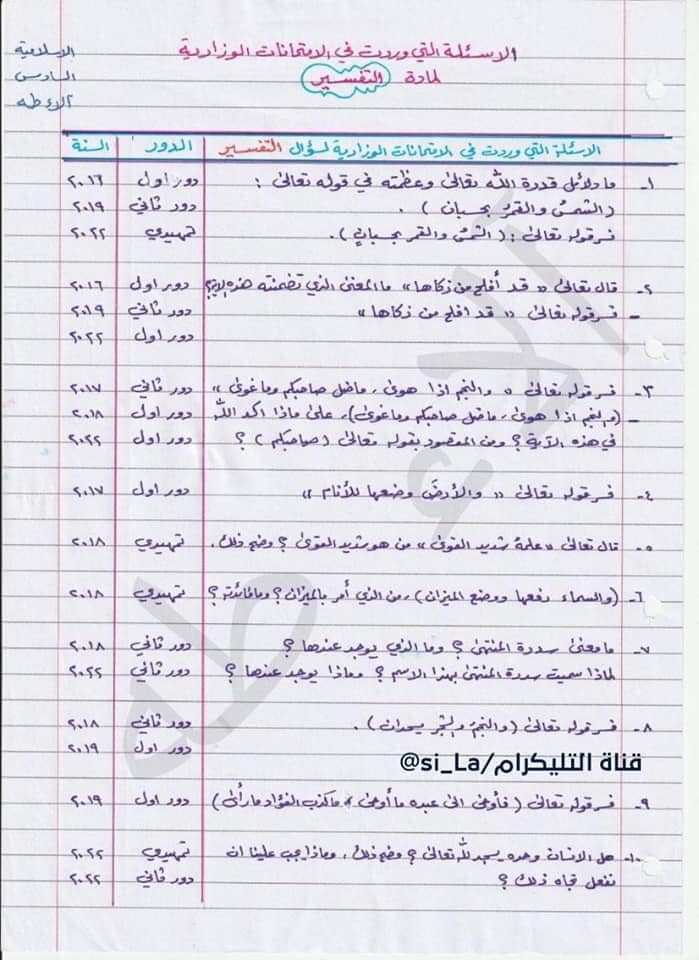 الاسئلة التي وردت في الامتحانات الوزارية
لمادة التفسير
الاسلامية
السادس
الاء طه
الاسئلة التي وردت في الامتحانات الوزارية لسؤال التفسير | الدور | السنة
١- ما دلائل قدرة الله تعالى وعظمته في قوله تعالى : دور اول ٢٠١٦
(الشمسُ والقمرُ بحسبان ) . دور ثاني ٢٠١٩
فسر قوله تعالى : ( الشمسُ والقمر بحسبانٍ ). تمهيدي ٢٠٢٢
٢- قال تعالى « قد أفلح من زكاها » ما المعنى الذي تضمنته هذه الاية؟ دور اول ٢٠١٦
- فسر قوله تعالى « قد افلح من زكاها » دور ثاني ٢٠١٩
دور اول ٢٠٢٢
٣- فسر قوله تعالى « والنجم اذا هوى ، ماضل صاحبكم وماغوى » دور ثاني ٢٠١٧
- (والنجم اذا هوى ، ماضل صاحبكم وماغوى)، على ماذا اكد الله دور اول ٢٠١٨
في هذه الآية ؟ ومن المقصود بقوله تعالى ( صاحبكم ) ؟ دور اول ٢٠٢٢
٤- فسر قوله تعالى « والأرضَ وضعها للأنام » دور اول ٢٠١٧
٥- قال تعالى «علمهُ شديد القوى» من هو شديد القوى ؟ وضح ذلك. تمهيدي ٢٠١٨
٦- (والسماء رفعها ووضع الميزان) ، من الذي أمر بالميزان ؟ وما فائدته ؟ تمهيدي ٢٠١٨
٧- ما معنى سدرة المنتهى ؟ وما الذي يوجد عندها ؟ دور ثاني ٢٠١٨
لماذا سميت سدرة المنتهى بهذا الاسم ؟ وماذا يوجد عندها ؟ دور ثاني ٢٠٢٢
٨- فسر قوله تعالى (والنجمُ والشجر يسجدان ). دور ثاني ٢٠١٨
دور اول ٢٠١٩
قناة التليكرام/@si_La
٩- فسر قوله تعالى ( فأوحى الى عبده ما أوحى ، ماكذب الفؤاد مارأى) دور اول ٢٠١٩
١٠- هل الانسان وحده يسجد لله تعالى ؟ وضح ذلك ، وماذا يجب علينا ان تمهيدي ٢٠٢٢
نفعل تجاه ذلك ؟ دور ثاني ٢٠٢٢
الاء طه